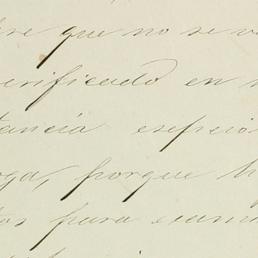 que no se v
verificado en
tancia esepció
oga, porque h
tos para exami